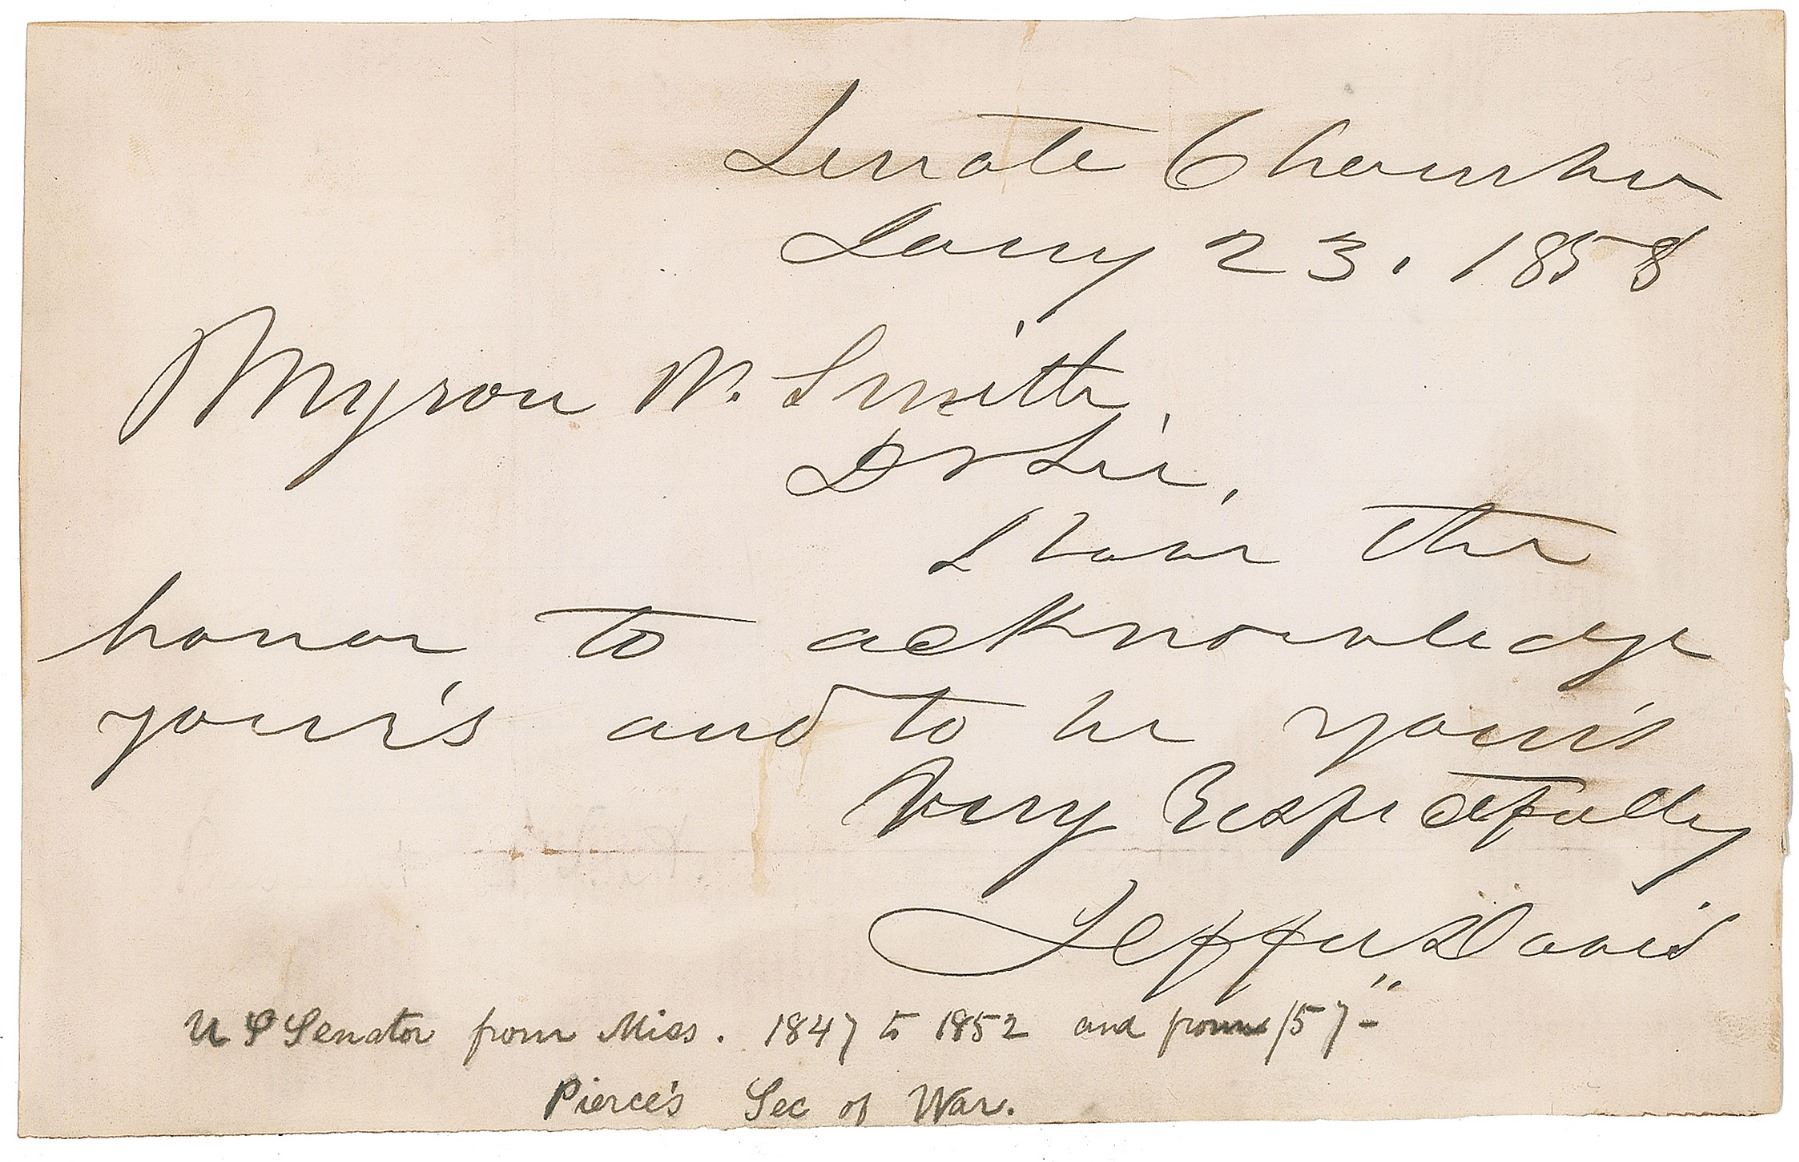 Senate Chamber
Jany 23. 1858
Myron W. Smith,
Dr Sir,
I have the
honor to acknowledge
your's and to be your's
Very Respectfully
Jeffer Davis
U S Senator from Miss. 1847 to 1852 and from /57-
Pierce's Sec of War.